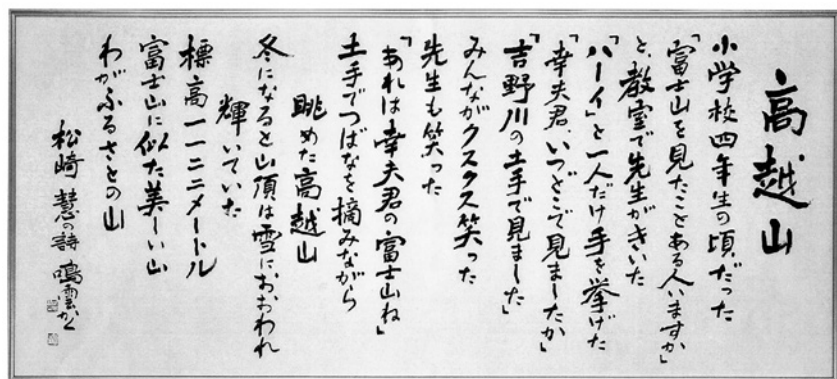 高越山
小学校四年生の頃だった
「富士山を見たことある人いますか」
と、教室で先生がきいた
「ハーイ」と一人だけ手を挙げた
「幸夫君、いつどこで見ましたか」
「吉野川の土手で見ました」
みんながクスクス笑った
先生も笑った
「あれは幸夫君の富士山ね」
土手でつばなを摘みながら
眺めた高越山
冬になると山頂は雪におおわれ
輝いていた
標高一一二二メートル
富士山に似た美しい山
わがふるさとの山
松崎 慧の詩 鳴雲かく